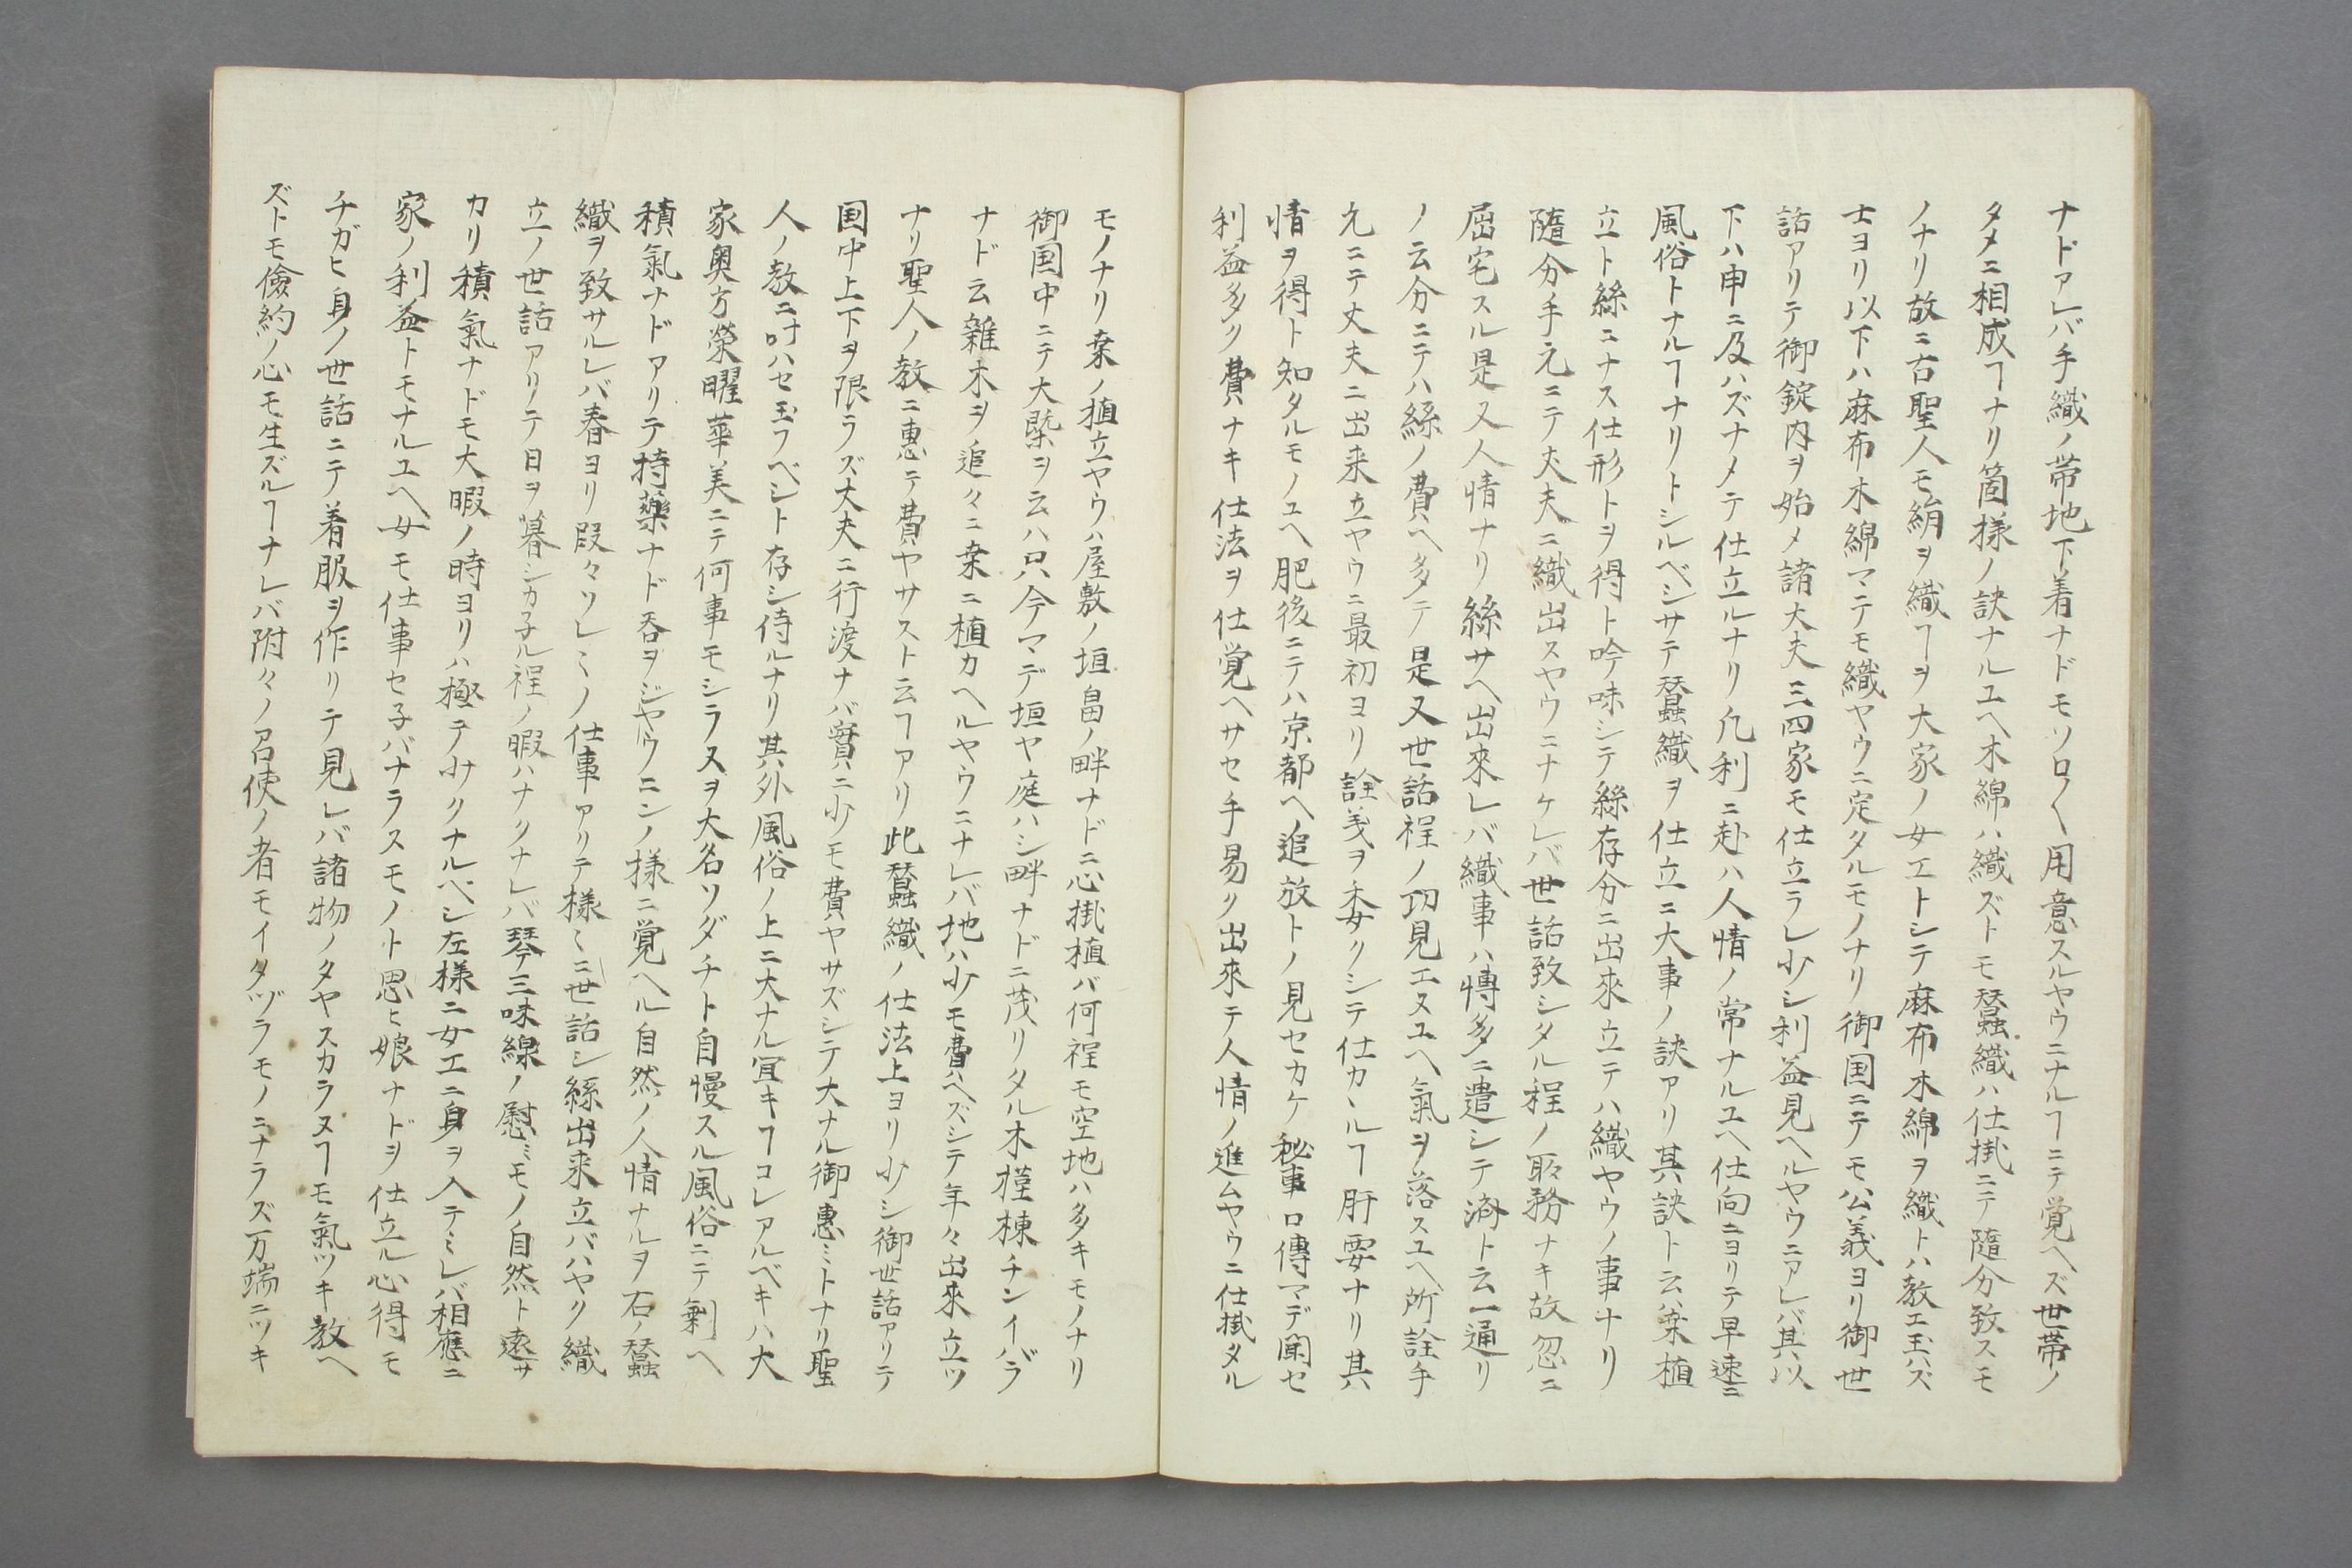 ナドアレバ手織ノ帯地下着ナドモソロ〱用意スルヤウニナルヿニテ覚ヘズ世帯ノ
タメニ相成ヿナリ箇様ノ訣ナルユヘ木綿ハ織ズトモ蠶織ハ仕掛ニテ随分致スモ
ノナリ故ニ古聖人モ絹ヲ織ヿヲ大家ノ女工トシテ麻布木綿ヲ織トハ教エ玉ハズ
士ヨリ以下ハ麻布木綿マテモ織ヤウニ定タルモノナリ御国ニテモ公義ヨリ御世
話アリテ御錠内ヲ始メ諸大夫三四家モ仕立ラレ少シ利益見ヘルヤウニアレバ其以
下ハ申ニ及ハズナメテ仕立ルナリ凡利ニ赴ハ人情ノ常ナルユヘ仕向ニヨリテ早速ニ
風俗トナルヿナリトシルベシサテ蠶織ヲ仕立ニ大事ノ訣アリ其訣ト云ハ桒植
立ト絲ニナス仕形トヲ得ト吟味シテ絲存分ニ出來立テハ織ヤウノ事ナリ
随分手元ニテ丈夫ニ織出スヤウニナケレバ世話致シタル程ノ取務ナキ故忽ニ
屈宅スル是又人情ナリ絲サヘ出來レバ織事ハ博多ニ遣シテ済ト云一通リ
ノ云分ニテハ絲ノ費ヘ多テ是又世話程ノ功見エヌユヘ氣ヲ落スユヘ所詮手
元ニテ丈夫ニ出来立ヤウニ最初ヨリ詮義ヲ委クシテ仕カヽルヿ肝要ナリ其
情ヲ得ト知タルモノユヘ肥後ニテハ京都ヘ追放トノ見セカケ秘事口傳マデ聞セ
利益多ク費ハナキ仕法ヲ仕覚ヘサセ手易ク出來テ人情ノ進ムヤウニ仕掛タル
モノナリ桒ノ植立ヤウハ屋敷ノ垣畠ノ畔ナドニ心掛植バ何程モ空地ハ多キモノナリ
御国中ニテ大槩ヲ云ハ只今マデ垣ヤ庭ハシ畔ナドニ茂リタル木槿楝チンイバラ
ナド云雑木ヲ追々ニ桒ニ植カヘルヤウニナレバ地ハ少モ費ヘズシテ年々出來立ツ
ナリ聖人ノ教ニ惠テ費ヤサスト云ヿアリ此蠶織ノ仕法上ヨリ少シ御世話アリテ
国中上下ヲ限ラズ大夫ニ行渡ナバ實ニ少モ費ヤサズシテ大ナル御惠ミトナリ聖
人ノ教ニ叶ハセ玉フベシト存シ侍ルナリ其外風俗ノ上ニ大ナル宜キヿコレアルベキハ大
家奥方榮曜華美ニテ何事モシラヌヲ大名ソダチト自慢スル風俗ニテ剰ヘ
積氣ナドアリテ持藥ナド呑ヲジヤウニンノ様ニ覚ヘル自然ノ人情ナルヲ右ノ蠶
織ヲ致サルレバ春ヨリ段々ソレ〻ノ仕事アリテ様〻ニ世話シ絲出来立バハヤク織
立ノ世話アリテ日ヲ暮シカ子ル程ノ暇ハナクナレバ琴三味線ノ慰ミモノ自然ト遠サ
カリ積氣ナドモ大暇ノ時ヨリハ極テ少クナルベシ左様ニ女工ニ身ヲ入テミレバ相應ニ
家ノ利益トモナルユヘ女モ仕事セ子バナラスモノト思ヒ娘ナドヲ仕立ル心得モ
チガヒ身ノ世話ニテ着服ヲ作リテ見レバ諸物ノタヤスカラヌヿモ氣ツキ教ヘ
ズトモ儉約ノ心モ生ズルヿナレバ附々ノ召使ノ者モイタヅラモノニナラズ万端ニツキ